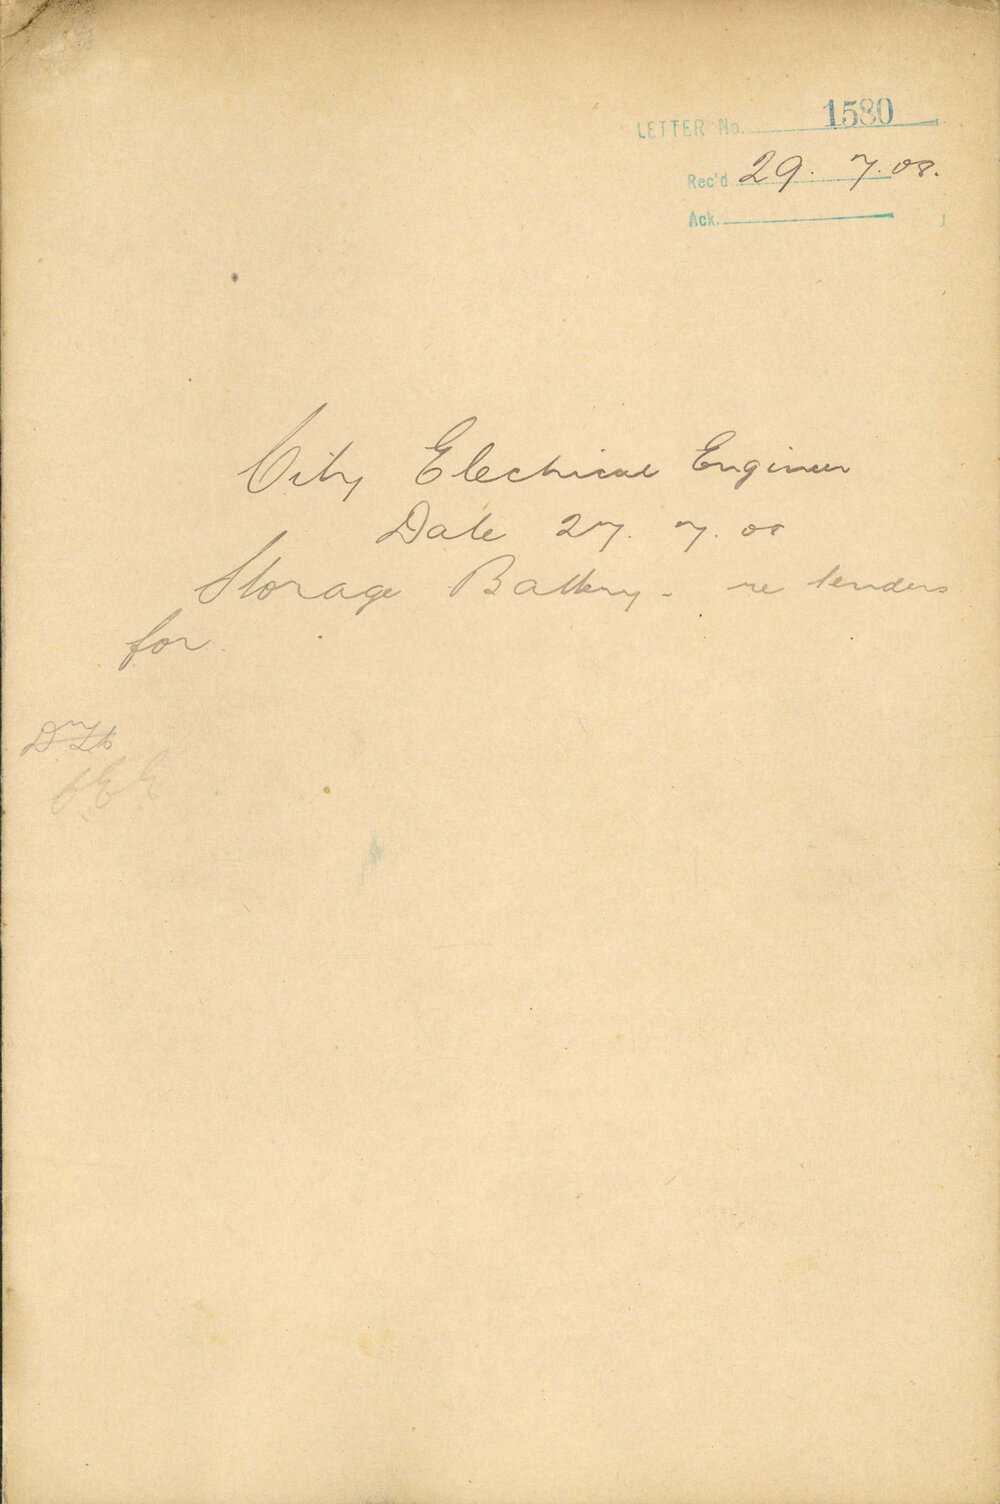 LETTER No. 1580
Rec'd 29. 7. 08.
Ack.
City Electrical Engineer
Date 27. 7. 08
Storage Battery - re tenders
for